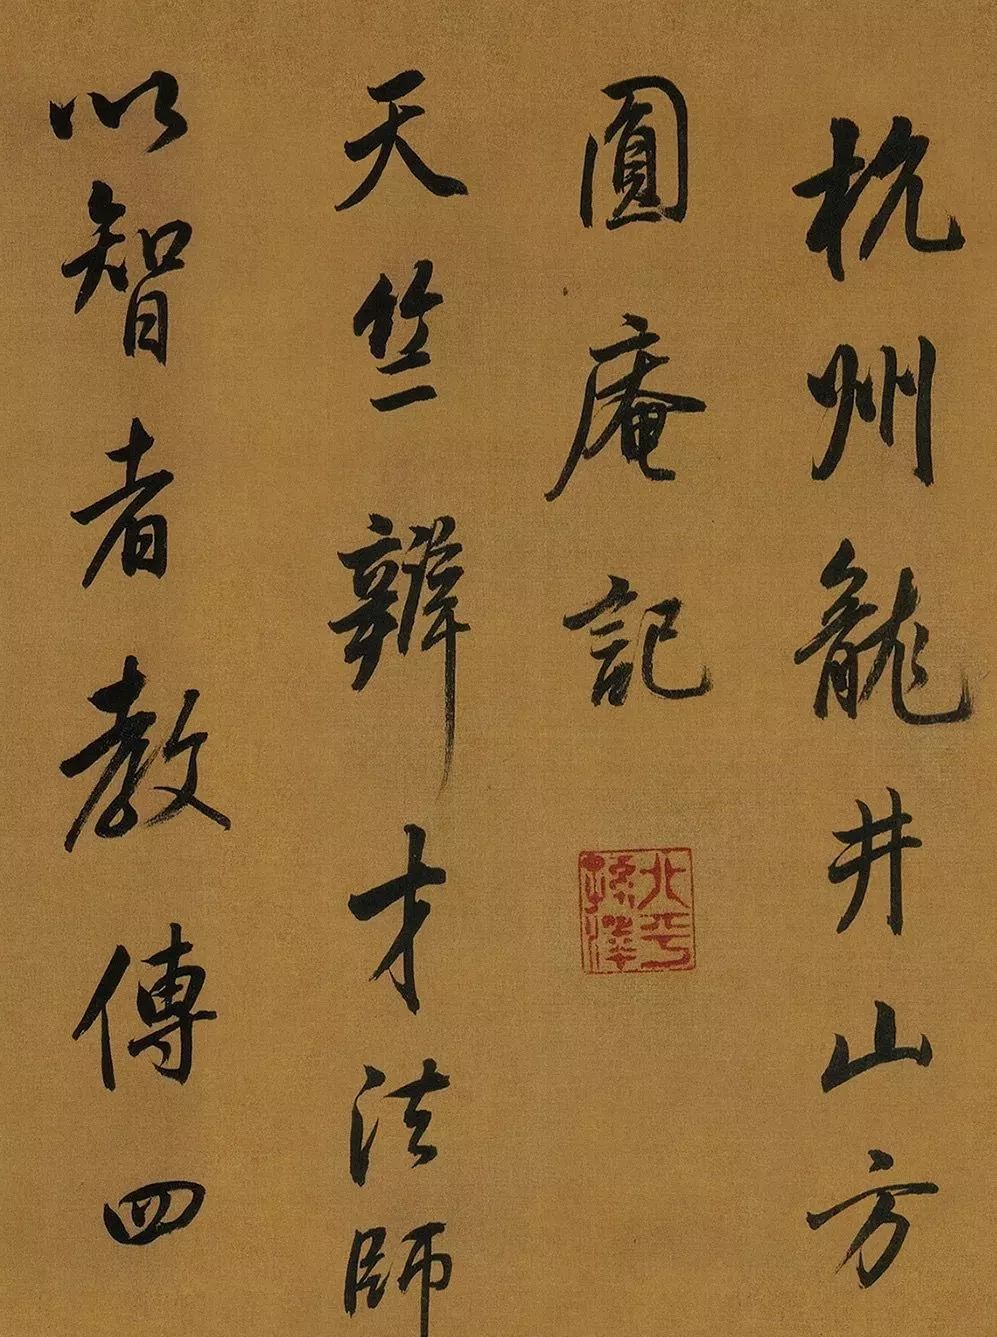 杭州龍井山方
圓庵記
天竺辯才法師
以智者教傳四
北平
孫澤